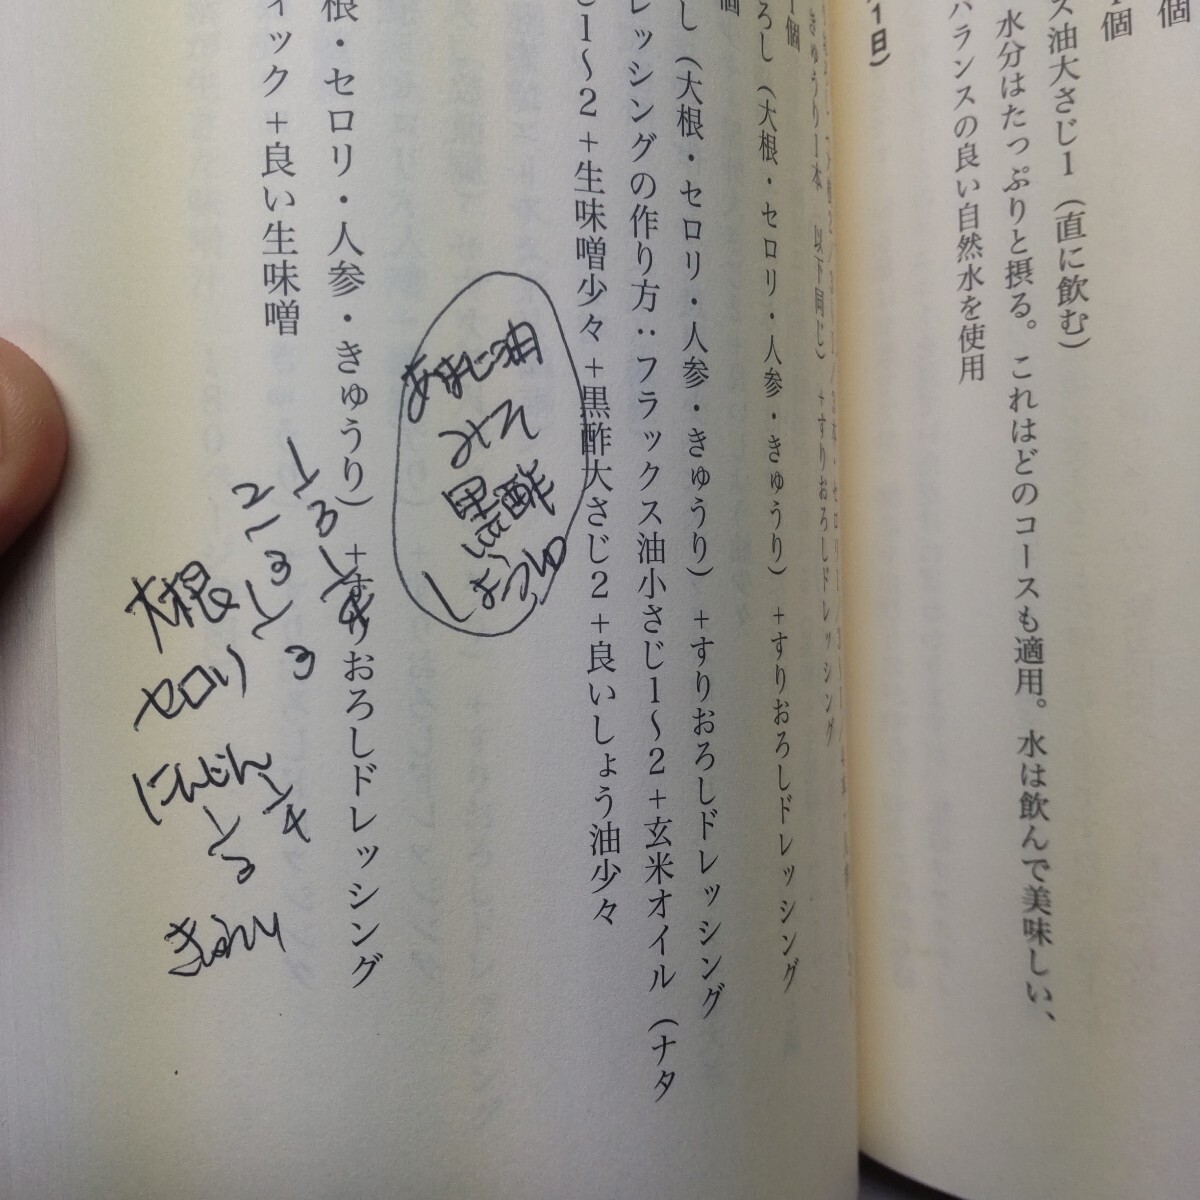 個
1個
ス油大さじ1（直に飲む）
水分はたっぷりと摂る。これはどのコースも適用。水は飲んで美味しい、
バランスの良い自然水を使用
1日）
きゅうり1本　以下同じ）＋すりおろしドレッシング
1個
おろし（大根・セロリ・人参・きゅうり）＋すりおろしドレッシング
個
し（大根・セロリ・人参・きゅうり）＋すりおろしドレッシング
レッシングの作り方：フラックス油小さじ1〜2＋玄米オイル（ナタ
じ1〜2＋生味噌少々＋黒酢大さじ2＋良いしょう油少々
根・セロリ・人参・きゅうり）＋すりおろしドレッシング
ィック＋良い生味噌
あまに油
みそ
黒酢
しょうゆ
大根 2/3 1/3
セロリ 1/3 1/4
にんじん 1/4
1/3
きゅうり